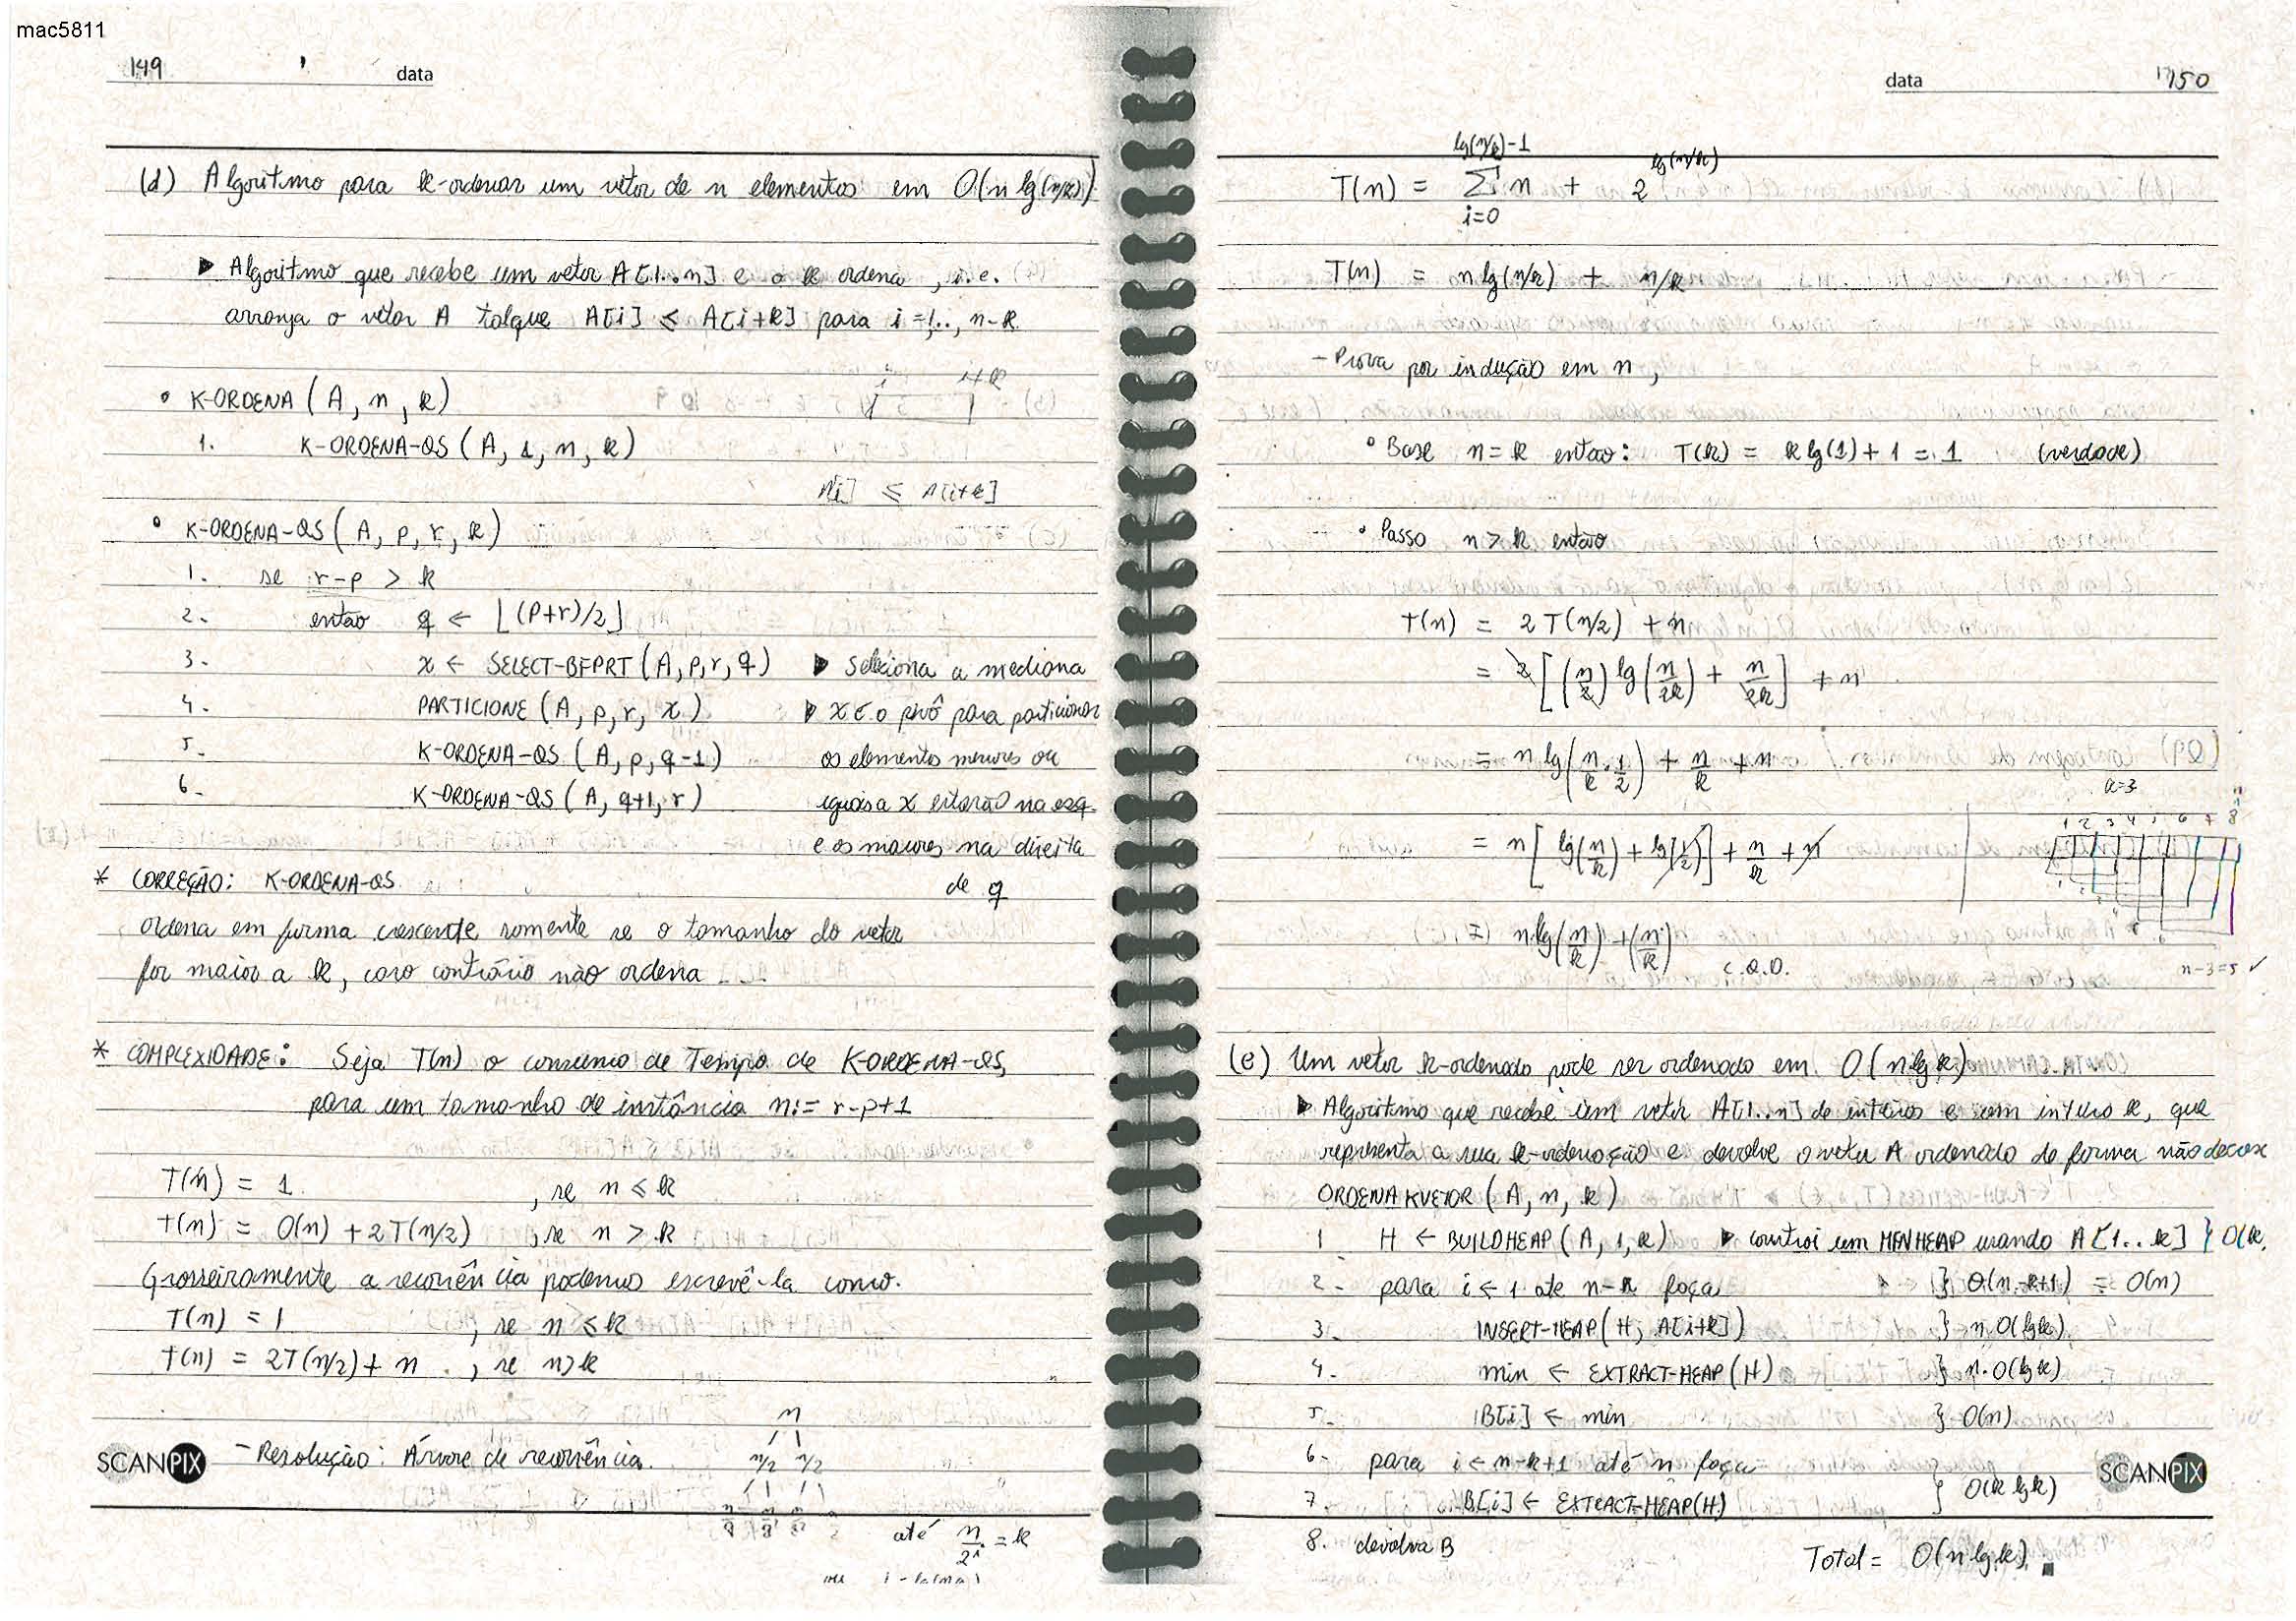 mac5811
149 data
(d) Algoritmo para k-ordenar um vetor de n elementos em O(n lg(n/k))
▶ Algoritmo que recebe um vetor A[1..n] e o k ordena, i.e.
arranja o vetor A talque A[i] ≤ A[i+k] para i=1.., n-k
i i+k
• K-ORDENA (A, n, k)
1. K-ORDENA-QS (A, 1, n, k)
A[i] ≤ A[i+k]
• K-ORDENA-QS (A, p, r, k)
1. se r-p > k
2. então q ← ⌊(p+r)/2⌋
3. x ← SELECT-BFPRT (A, p, r, q) ▶ Seleciona a mediana
4. PARTICIONE (A, p, r, x) ▶ x é o pivô para particionar
5. K-ORDENA-QS (A, p, q-1) os elementos menores ou
6. K-ORDENA-QS (A, q+1, r) iguais a x estarão na esq.
e os maiores na direita
de q
* CORREÇÃO: K-ORDENA-QS
ordena em forma crescente somente se o tamanho do vetor
for maior a k, caso contrário não ordena ...
* COMPLEXIDADE: Seja T(n) o consumo de Tempo de K-ORDENA-QS,
para um tamanho de instância n := r-p+1
T(n) = 1 , se n ≤ k
T(n) = O(n) + 2T(n/2) , se n > k
Grosseiramente a recorrência podemos escrevê-la como.
T(n) = 1 , se n ≤ k
T(n) = 2T(n/2) + n , se n > k
n
- Resolução: Árvore de recorrência. n/2 n/2
até n/2^i = k
SCANPIX
data 150
T(n) = Σ_{i=0}^{lg(n/k)-1} n + 2^{lg(n/k)}
T(n) = n lg(n/k) + n/k
- Prova por indução em n,
• Base n = k então: T(k) = k lg(1) + 1 = 1 (verdade)
• Passo n > k então
T(n) = 2T(n/2) + n
= 2[(n/2) lg(n/2k) + n/2k] + n
= n lg(n/k · 1/2) + n/k + n
k=3
1 2 3 4 5 6 7 8
= n[lg(n/k) + lg(1/2)] + n/k + n
= n lg(n/k) + (n/k)
C.Q.D.
n-3=5 ✓
(e) Um vetor k-ordenado pode ser ordenado em O(n lg k)
▶ Algoritmo que recebe um vetor A[1..n] de inteiros e um inteiro k, que
representa a sua k-ordenação e devolve o vetor A ordenado de forma não decrex
ORDENAKVETOR (A, n, k)
1 H ← BUILDHEAP (A, 1, k) ▶ controi um MINHEAP usando A[1..k] } O(k
2- para i ← 1 ate n-k faça } O(n-k+1) = O(n)
3. INSERT-HEAP(H, A[i+k]) } n.O(lg k)
4. min ← EXTRACT-HEAP(H) } n.O(lg k)
5- B[i] ← min } O(n)
6- para i ← n-k+1 até n faça
7. B[i] ← EXTRACT-HEAP(H) } O(k lg k)
8. devolva B
Total = O(n lg k)
SCANPIX